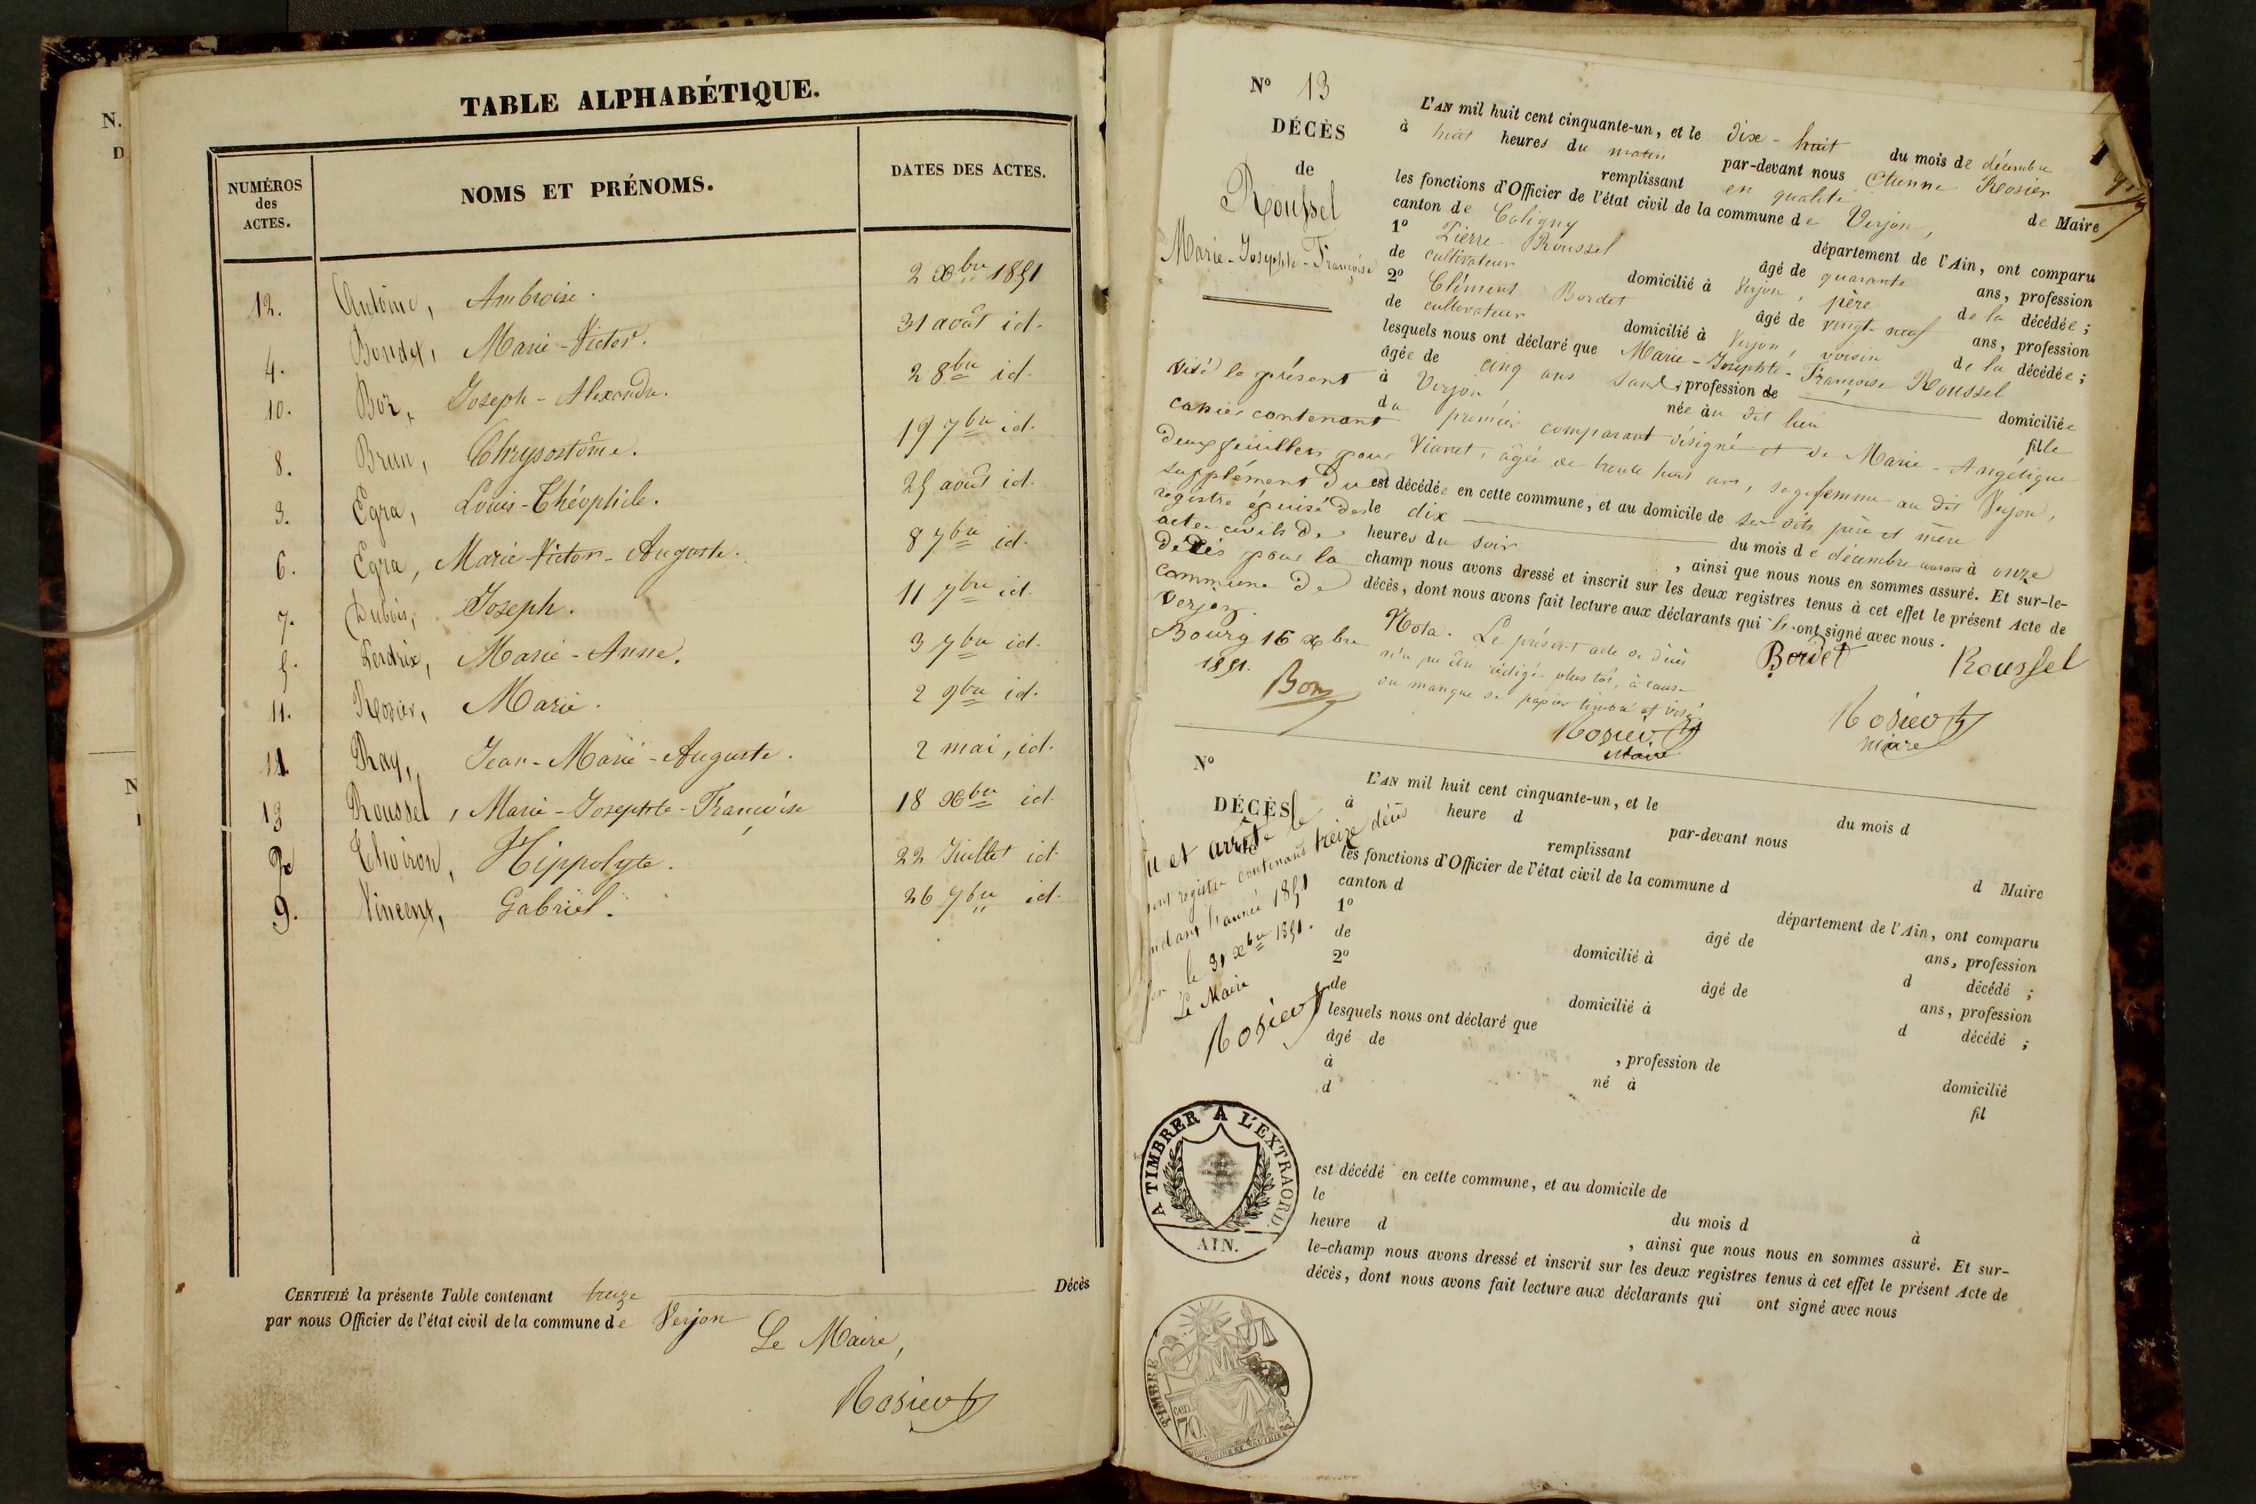 TABLE ALPHABÉTIQUE.
NUMÉROS des ACTES. NOMS ET PRÉNOMS. DATES DES ACTES.
12. Antoine, Ambroise. 2 Xbre 1851
4. Bondet, Marie-Victor. 31 août id.
10. Boz, Joseph-Alexandre. 2 8bre id.
8. Brun, Chrysostôme. 19 7bre id.
3. Egra, Louis-Théophile. 25 août id.
6. Egra, Marie-Victor-Auguste. 8 7bre id.
7. Dubois, Joseph. 11 7bre id.
5. Perdrix, Marie-Anne. 3 7bre id.
11. Rosier, Marie. 2 9bre id.
1. Ray, Jean-Marie-Auguste. 2 mai, id.
13 Roussel, Marie-Josephte-Françoise 18 Xbre id.
2. Thoiron, Hippolyte. 22 Juillet id.
9. Vincent, Gabriel. 26 7bre id.
CERTIFIÉ la présente Table contenant treize Décès
par nous Officier de l'état civil de la commune de Verjon
Le Maire,
Rosier
N° 13
DÉCÈS
de
Roussel
Marie-Josephte-Françoise
L'AN mil huit cent cinquante-un, et le dix-huit du mois de décembre
à huit heures du matin par-devant nous Etienne Rosier
remplissant en qualité de Maire
les fonctions d'Officier de l'état civil de la commune de Verjon,
canton de Coligny département de l'Ain, ont comparu
1° Pierre Roussel âgé de quarante ans, profession
de cultivateur domicilié à Verjon, père de la décédée;
2° Clément Bordet âgé de vingt-neuf ans, profession
de cultivateur domicilié à Verjon, voisin de la décédée;
lesquels nous ont déclaré que Marie-Josephte-Françoise Roussel
âgée de cinq ans , profession de domiciliée
à Verjon née au dit lieu fille
du premier comparant désigné et de Marie-Angélique
Vianet, âgée de trente huit ans, sage femme au dit Verjon,
est décédée en cette commune, et au domicile de ses dits père et mère
le dix du mois de décembre à onze
heures du soir , ainsi que nous nous en sommes assuré. Et sur-le-
champ nous avons dressé et inscrit sur les deux registres tenus à cet effet le présent Acte de
décès, dont nous avons fait lecture aux déclarants qui ont signé avec nous.
Bordet Roussel
Nota. Le présent acte de décès
n'a pu être rédigé plus tôt, à cause
du manque de papier timbré et visé
Rosier
Maire
Rosier
maire
Visé le présent
cahier contenant
deux feuilles pour
supplément du
registre épuisé des
actes civils de
décès pour la
commune de
Verjon.
Bourg 16 Xbre
1851.
N°
DÉCÈS
L'AN mil huit cent cinquante-un, et le du mois d
à heure d par-devant nous
remplissant d Maire
les fonctions d'Officier de l'état civil de la commune d
canton d département de l'Ain, ont comparu
1° âgé de ans, profession
de domicilié à d décédé ;
2° âgé de ans, profession
de domicilié à d décédé ;
lesquels nous ont déclaré que
âgé de , profession de
à né à domicilié
d fil
est décédé en cette commune, et au domicile de
le du mois d à
heure d , ainsi que nous nous en sommes assuré. Et sur-
le-champ nous avons dressé et inscrit sur les deux registres tenus à cet effet le présent Acte de
décès, dont nous avons fait lecture aux déclarants qui ont signé avec nous
et arrêté le
registre contenant treize décès
l'année 1851
le 31 Xbre 1851.
Le Maire
Rosier
A TIMBRER A L'EXTRAORD.
AIN.
TIMBRE
70 cen